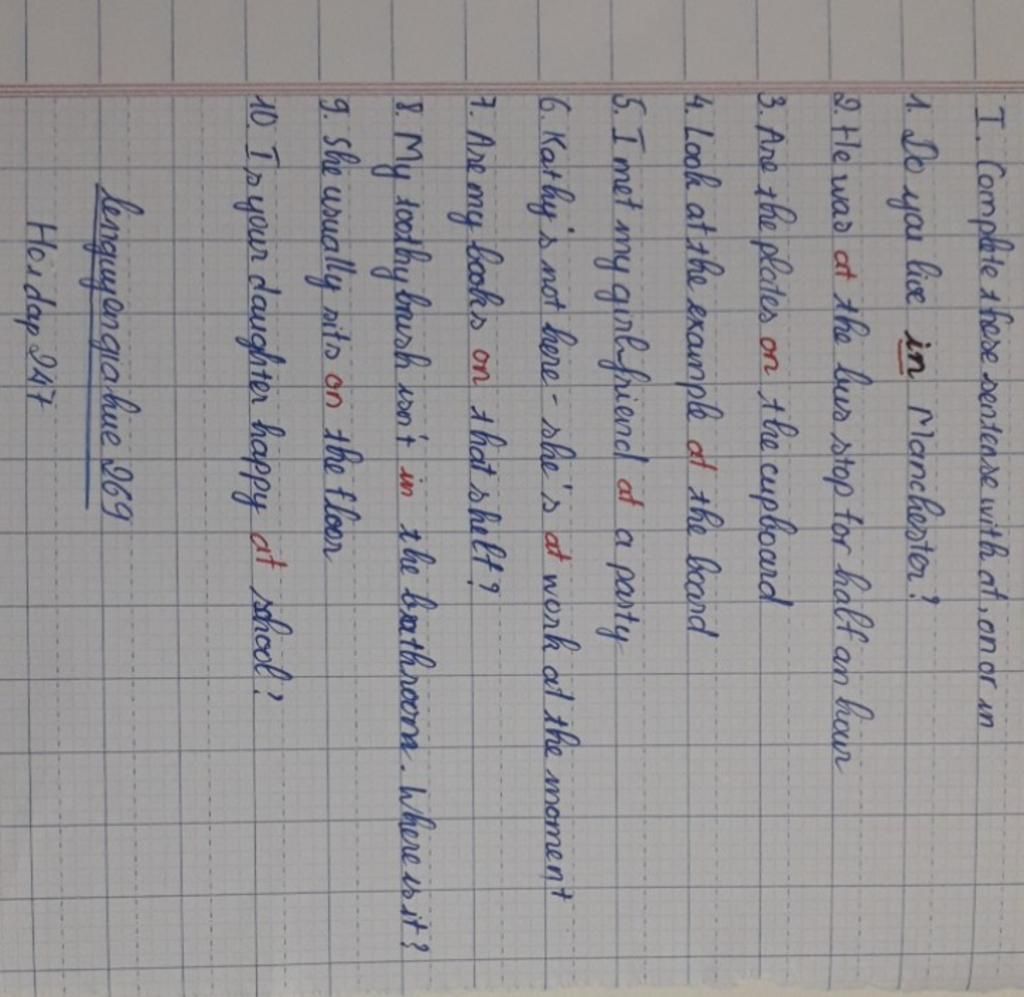 I. Complete these sentense with at, on or in
1. Do you live in Manchester?
2. He was at the bus stop for half an hour
3. Are the plates on the cupboard
4. Look at the example at the board
5. I met my girlfriend at a party
6. Kathy's not here - she's at work at the moment
7. Are my books on that shelf?
8. My toothybrush isn't in the bathroom. Where is it?
9. She usually sits on the floor
10. Is your daughter happy at school?
lenguyengiahue269
Hoidap247